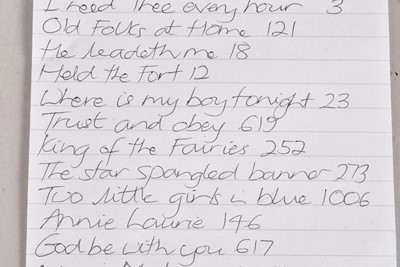 I need Thee every hour 3
Old Folks at Home 121
He leadeth me 18
Held the Fort 12
Where is my boy tonight 23
Trust and obey 619
King of the Fairies 252
The star spangled banner 273
Two little girls in blue 1006
Annie Laurie 146
God be with you 617